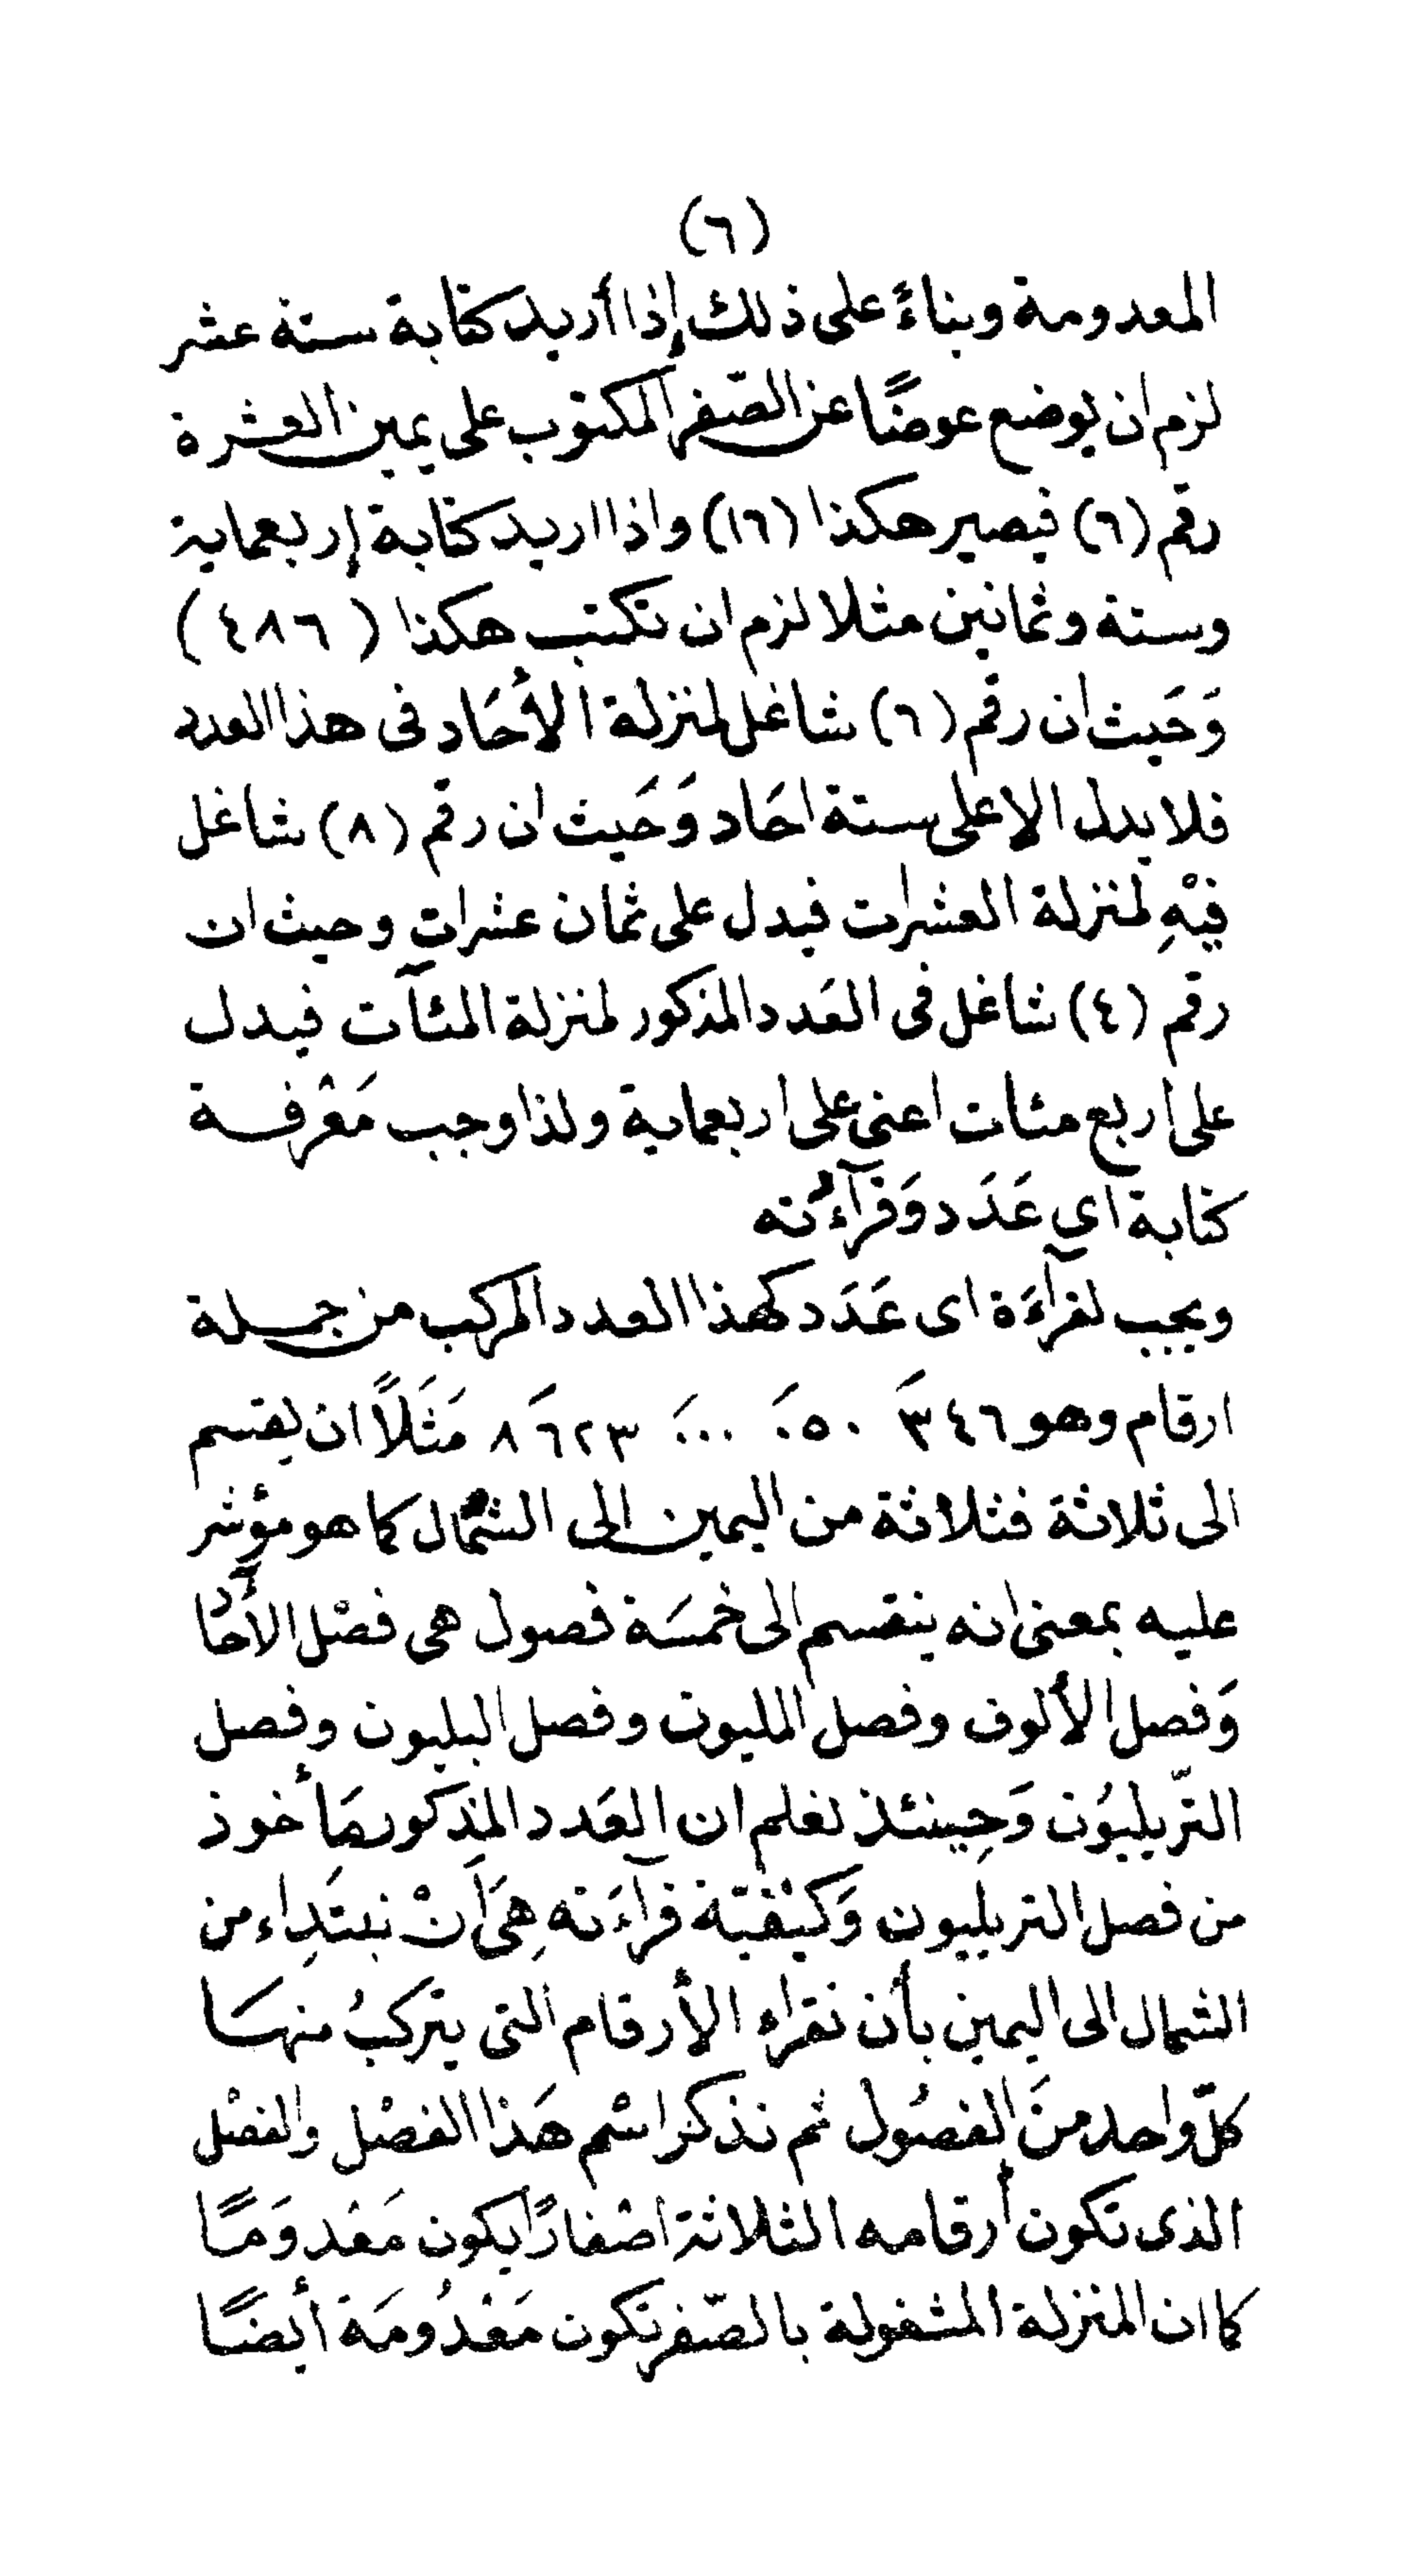 (٦)
المعدومة وبناءً على ذلك إذا أريد كتابة ستة عشر
لزم ان يوضع عوضًا عن الصّفر المكتوب على يمين العشرة
رقم (٦) فيصير هكذا (١٦) واذا اريد كتابة إربعماية
وستة وثمانين مثلا لزم ان تكتب هكذا (٤٨٦)
وَحَيث ان رقم (٦) شاغل لمنزلة الأحَاد فى هذا العدد
فلا يدل الا على ستة احَاد وَحَيث ان رقم (٨) شاغل
فيْهِ لمنزلة العشرات فيدل على ثمان عشراتٍ وحيث ان
رقم (٤) شاغل فى العَدد المذكور لمنزلة المئآت فيدل
على اربع مئات اعنى على اربعماية ولذا وجب مَعْرفة
كتابة اي عَدَد وَقرآءته
ويجب لقرآءَة اى عَدَد كهذا العدد المركب من جملة
ارقام وهو ٨َ٦٢٣ َ٠٠٠ َ٠٥٠ َ٣٤٦ مَثَلاً ان يقسم
الى ثلاثة فثلاثة من اليمين الى الشمال كما هو مؤشر
عليه بمعنى انه ينقسم الى خمسَة فصول هى فصْل الآحَاد
وَفصل الألوف وفصل المليون وفصل البليون وفصل
التّريليوُن وَحِينئذ نعلم ان العَدد المذكور مَأخوذ
من فصل التريليون وَكيْفيّة قرآءَته هِىَ اَنْ نبتَدِاء من
الشمال الى اليمين بأن نقراء الأرقام التى يتركبُ منهَا
كلّ واحد منَ الفصُول ثم نذكر اسْم هَذا الفصْل والفصْل
الذى تكون أرقامه الثلاثة اصْفارًا يكون مَعْدومًا
كما ان المنزلة المشغولة بالصّفر تكون مَعْدُومَة أيضًا